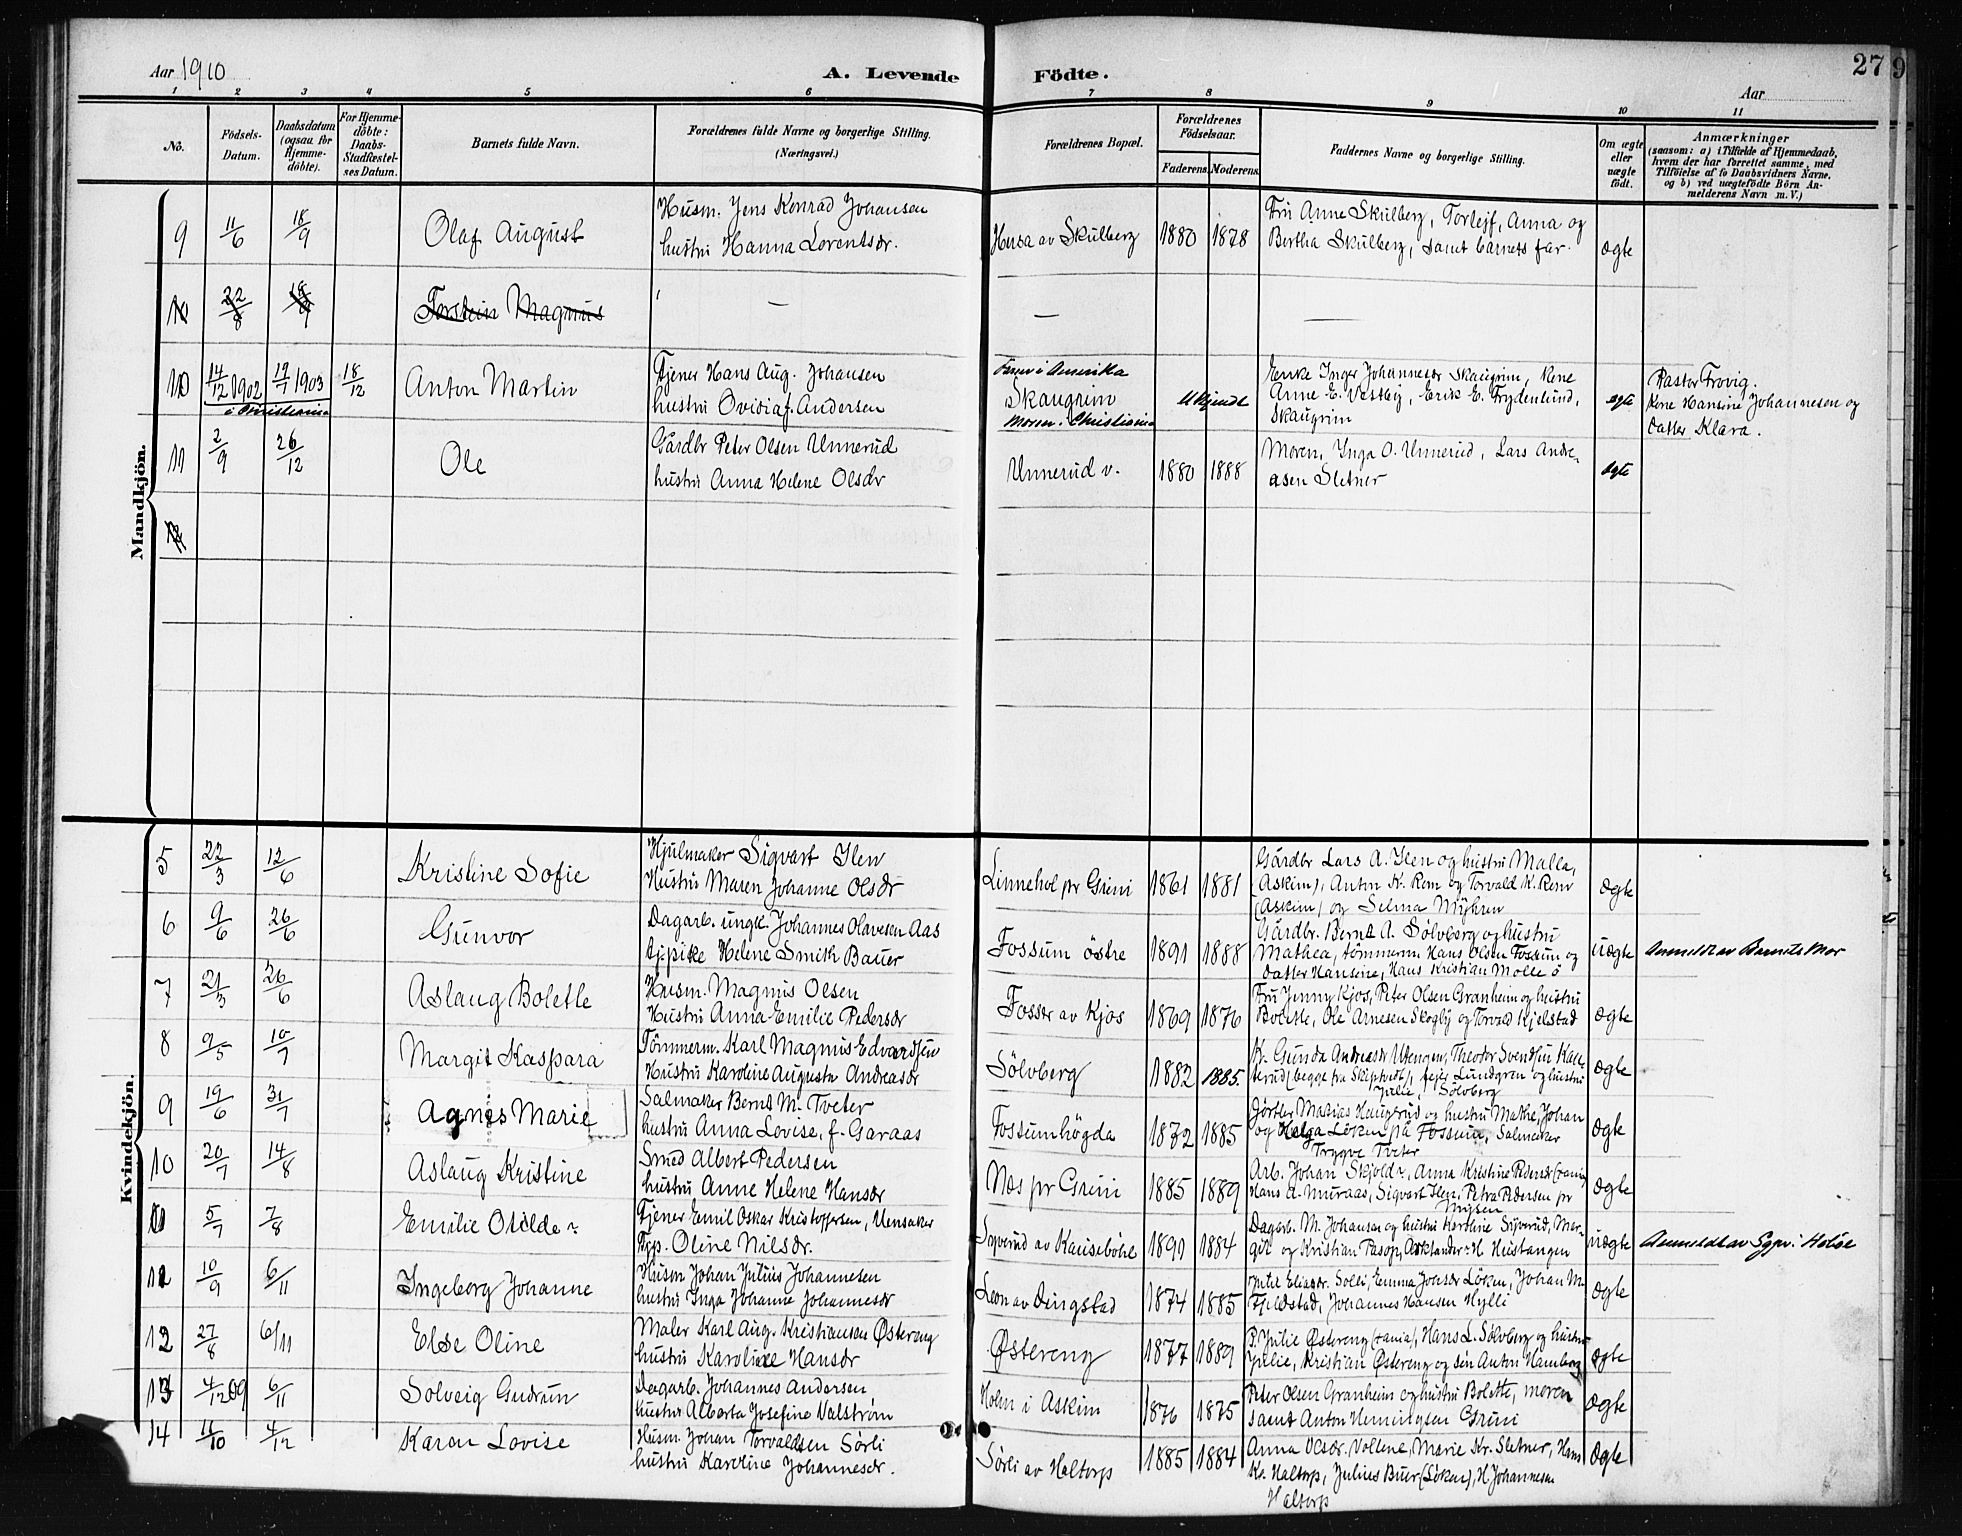 Aar 1910
A. Levende Födte.
Aar
27
9
1 2 3 4 5 6 7 8 9 10 11
No.
Födsels-
Datum.
Daabsdatum
(ogsaa for
Hjemme-
döbte).
For Hjemme-
döbte:
Daabs-
Stadfæstel-
ses Datum.
Barnets fulde Navn.
Forældrenes fulde Navne og borgerlige Stilling.
(Næringsvei.)
Forældrenes Bopæl.
Forældrenes
Födselsaar.
Faderens. Moderens.
Faddernes Navne og borgerlige Stilling.
Om ægte
eller
uægte
födt.
Anmærkninger
(saasom: a) i Tilfælde af Hjemmedaab,
hvem der har forrettet samme, med
Tilföielse af to Daabsvidners Navne,
og b) ved uægtefödte Börn An-
melderens Navn m. V.)
Mandkjön.
9 11/6 18/9 Olaf August
Husm. Jens Konrad Johansen
hustru Hanna Lorentsdr.
Husa av Skulberg 1880 1878
Fru Anne Skulberg, Torleif, Anna og
Bertha Skulberg, samt barnets far.
ægte
10 22/8 18/9 Torstein Magnus
10 14/12 1902 19/7 1903 18/12 Anton Martin
i Christiania
Tjener Hans Aug. Johansen
hustru Ovidia f. Andersen
Faren i Amerika
Skaugrim
Moren i Christiania
Ukjendt
Enke Inger Johannesdr Skaugrim, Kone
Anne E. Vestby, Erik E. Frydenlund,
Skaugrim
ægte
Pastor Frovig.
Kone Hansine Johannesen og
datter Klara.
11 2/9 26/12 Ole
Gårdbr Peter Olsen Unnerud
hustru Anna Helene Olsdr
Unnerud v. 1880 1888
Moren, Inga O. Unnerud, Lars Andre-
asen Sletner
ægte
12
Kvindekjön.
5 22/3 12/6 Kristine Sofie
Hjulmaker Sigvart Ilen
Hustru Maren Johanne Olsdr
Linnehol pr Grini 1861 1881
Gårdbr Lars A. Ilen og hustru Malla,
(Askim), Anton K. Rom og Torvald K. Rom
(Askim) og Selma Myhren
ægte
6 9/6 26/6 Gunvor
Dagarb. ungk. Johannes Olavesen Aas
tj.pike Helene Smith Bauer
Fossum östre 1891 1888
Gårdbr. Bernt A. Sølvberg og hustru
Mathea, tömmerm Hans Olsen Fossum og
datter Hansine, Hans Kristian Molle ö
uægte
Anmeldt av Barnets Mor
7 21/3 26/6 Aslaug Bolette
Husm. Magnus Olsen
Hustru Anna Emilie Pedersdr
Fosser av Kjos 1869 1876
Fru Jenny Kjos, Peter Olsen Granheim og hustru
Bolette, Ole Arnesen Skogly og Torvald Kjelstad
ægte
8 9/5 10/7 Margit Kaspara
Tömmerm. Karl Magnus Edvardsen
Hustru Karoline Augusta Andreasdr
Sölvberg 1882 1885.
K. Gunda Andreasdr Utengen, Theodor Svendsen Kal-
terud (begge fra Skiptvedt), fejer Lundgren og hustru
Julie, Sölvberg
ægte
9 19/6 31/7 Agnes Marie
Salmaker Bernt M. Tveter
hustru Anna Lovise, f. Garaas
Fossumhögda 1872 1885
Jörtler Matias Haugsrud og hustru Mathe, Johan
og Helga Löken på Fossum, Salmaker
Trygve Tveter
ægte
10 20/7 14/8 Aslaug Kristine
Smed Albert Pedersen
hustru Anne Helene Hansdr
Næs pr Grini 1885 1889
Arb. Johan Skjold, Anna Kristine Pedersdr
Hans A. Muraas, Sigvart Ilen, Petra Pedersen pr
Mysen
ægte
5/7 7/8 Emilie Otilde
Tjener Emil Oskar Kristoffersen, Uensaker
Tjp. Oline Nilsdr.
Syverud av Kausebøl 1891 1884
Dagarb. M. Johansen og hustru Karoline Syverud, Mar-
git og Kristian Tasop, H Hustangen
uægte
Anmeldt av
10/9 6/11 Ingeborg Johanne
Husm Johan Julius Johannesen
hustru Inga Johanne Johannesdr
Leon av Dingstad 1874 1885
Eliasdr. Solli, Emma Jonsdr Löken, Johan M.
Fjeldstad, Johannes Hansen Hylli
ægte
12 27/8 6/11 Else Oline
Maler Karl Aug. Kristiansen Østereng
hustru Karoline Hansdr
Østereng 1877 1889
P. Julie Østereng, Hans L. Sølvberg og hustru
Julie, Kristian Østereng og sön Anton Hamborg
ægte
13 4/12 09 6/11 Solveig Gudrun
Dagarb. Johannes Andersen,
hustru Alberta Josefine Valström
Holm i Askim 1876 1875
Peter Olsen Granheim og hustru Bolette, moren
samt Anton Henningsen Grini
ægte
14 11/10 4/12 Karen Lovise
Husm. Johan Torvaldsen Sörli
hustru Karoline Johannesdr.
Sörli av Haltorp 1885 1884
Anna Olsdr. Vollene, Marie Kr. Sletner, Hans
Kr. Haltorp, Julius Buer (Löken), H. Johannesen
Haltorp
ægte